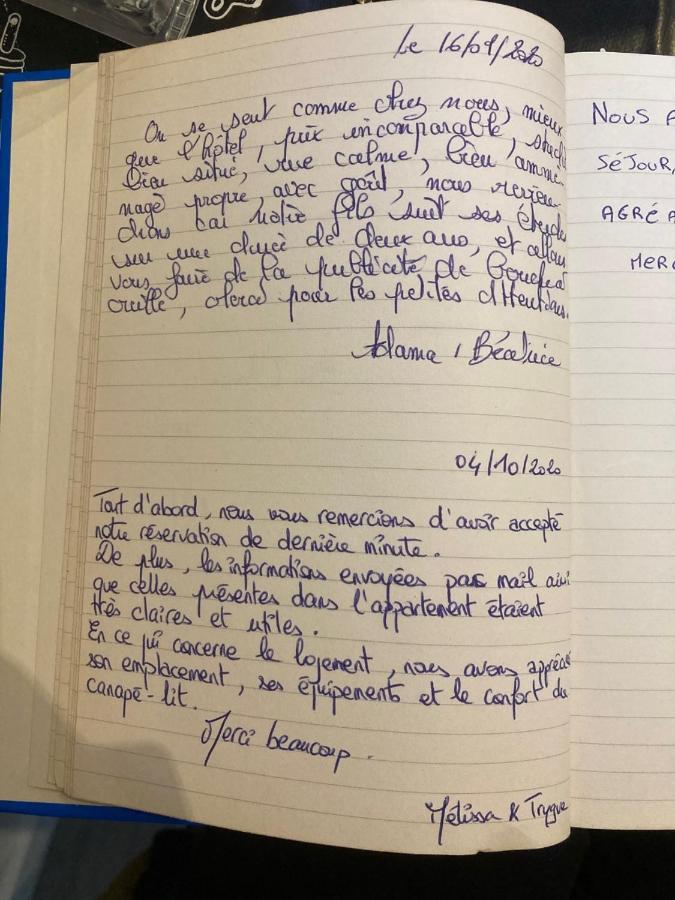 Le 16/09/2020
On se sent comme chez nous, mieux
que l'hôtel, prix incomparable, studio
bien situé, rue calme, bien amme-
nagé propre, avec goût, nous revien-
drons car notre fils suit ses études
sur une durée de deux ans, et allons
vous faire de la publicité de
pour les petites attentions.
Adama / Béatrice
04/10/2020
Tout d'abord, nous vous remercions d'avoir accepté
notre réservation de dernière minute.
De plus, les informations envoyées par mail ainsi
que celles présentes dans l'appartement étaient
très claires et utiles.
En ce qui concerne le lojement, nous avons apprécié
son emplacement, ses équipements et le confort du
canapé-lit.
Merci beaucoup.
Mélissa & Trygve
NOUS A
SÉJOUR,
AGRÉA
MERC